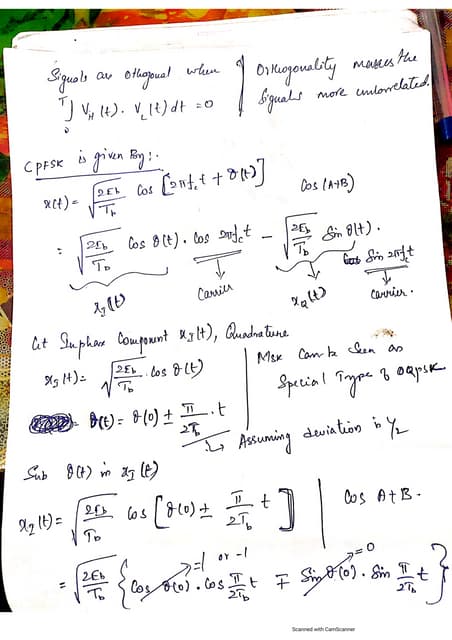 Signals are Othogonal when
T∫0 VH(t). VL(t) dt = 0
Orthogonality makes the
Signals more unlorrelated.
CPFSK is given By:.
x(t) = √(2Eb/Tb) Cos [2πfc t + θ(t)]
Cos (A+B)
= √(2Eb/Tb) Cos θ(t). Cos 2πfc t - √(2Eb/Tb) Sin θ(t). Sin 2πfc t
xI(t)
Carrier
xQ(t)
Carrier.
Inphase Component xI(t), Quadrature
xI(t) = √(2Eb/Tb) . Cos θ(t)
Msk Can be Seen as
Special Type of OQPSK
θ(t) = θ(0) ± π/2Tb . t
Assuming deviation is 1/2
Sub θ(t) in xI(t)
xI(t) = √(2Eb/Tb) Cos [θ(0) ± π/2Tb t]
Cos A+B.
=1 or -1
=0
= √(2Eb/Tb) {Cos θ(0). Cos π/2Tb t ∓ Sin θ(0). Sin π/2Tb t}
Scanned with CamScanner